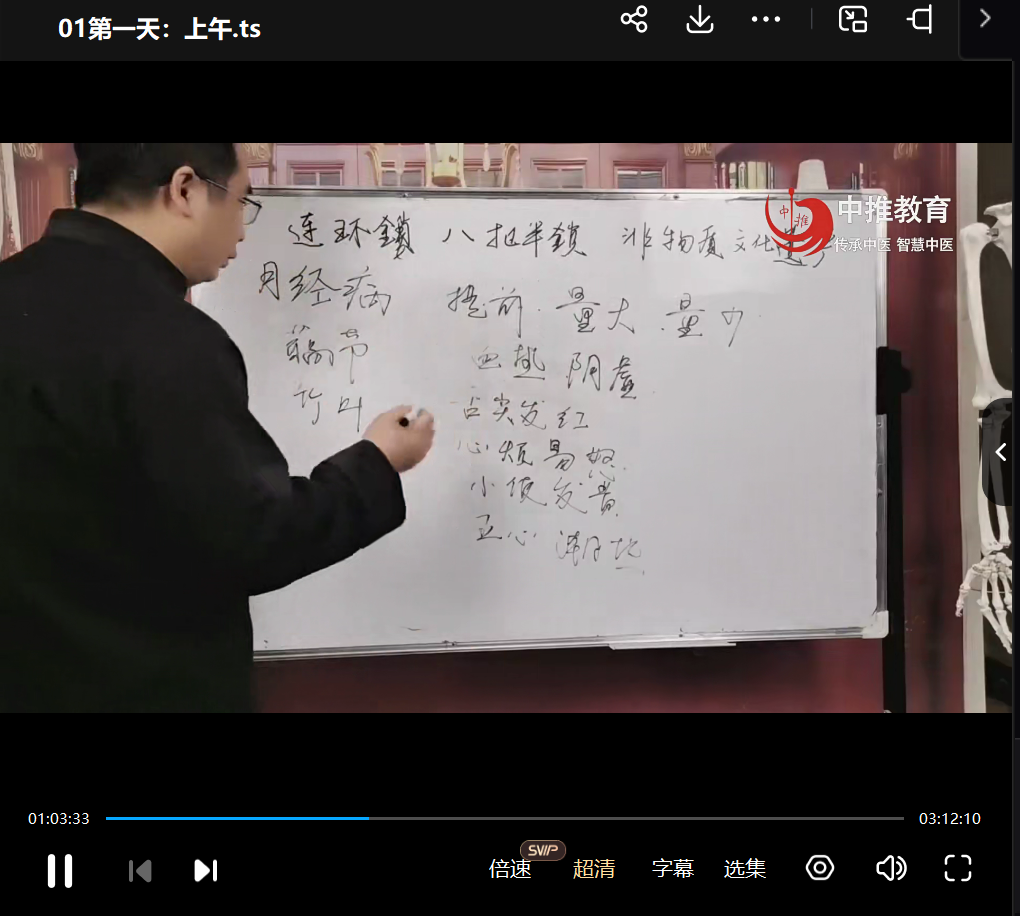 01第一天：上午.ts
中推教育
传承中医 智慧中医
中推
连环鎖 八把半鎖 非物质文化遗
月经病 提前 量大 量少
血热 阴虚
舌尖发红
心烦易怒
小便发黄
五心潮热
01:03:33
03:12:10
SVIP
倍速 超清 字幕 选集